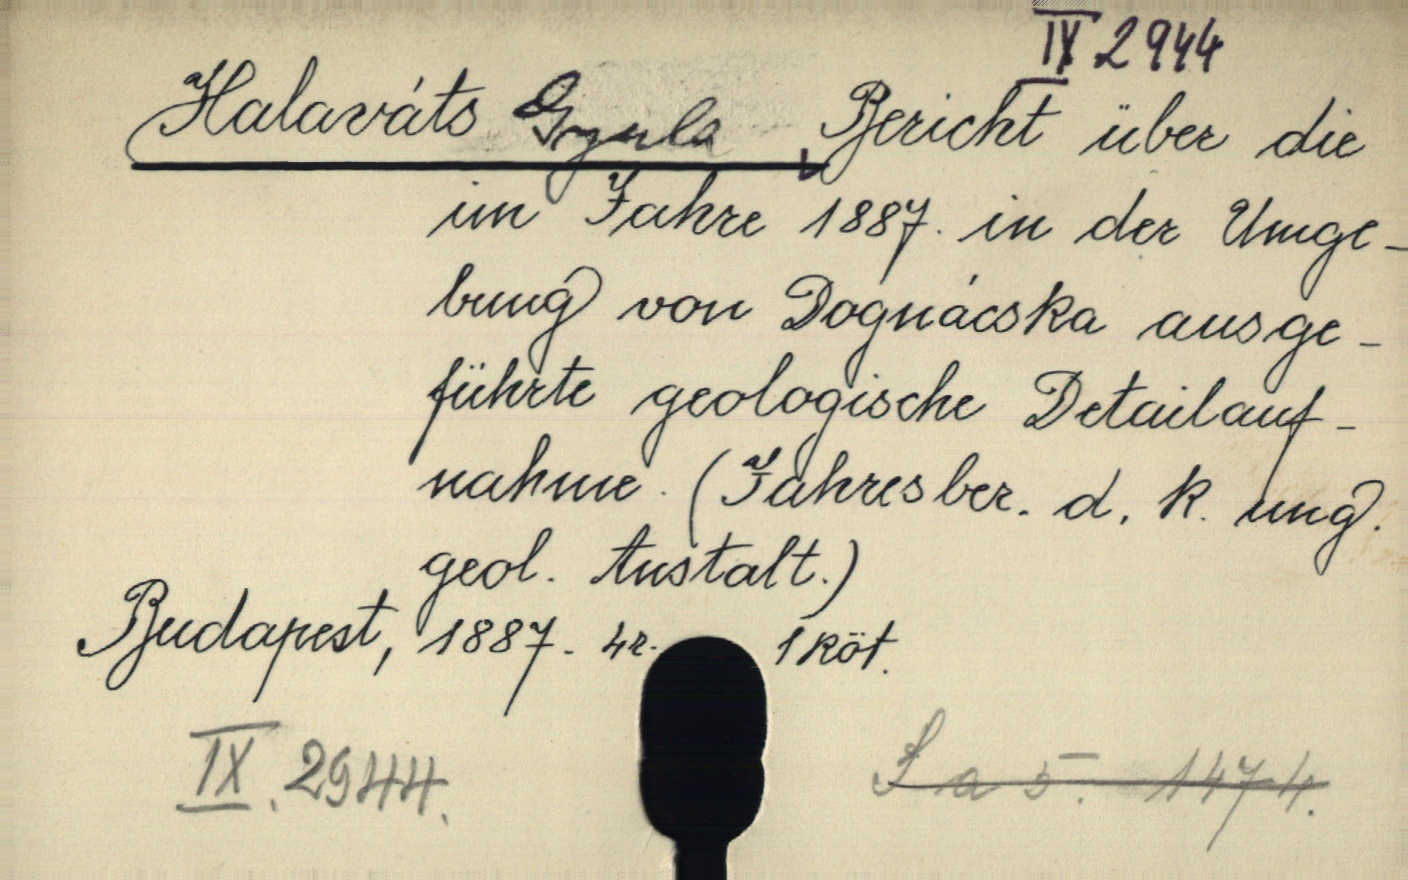 IX 2944
Halaváts Gyula, Bericht über die
im Jahre 1887. in der Umge-
bung von Dognácska ausge-
führte geologische Detailauf-
nahme. (Jahresber. d. k. ung.
geol. Anstalt.)
Budapest, 1887. 4r. 1 köt.
IX. 2944. S a 5. 1474.